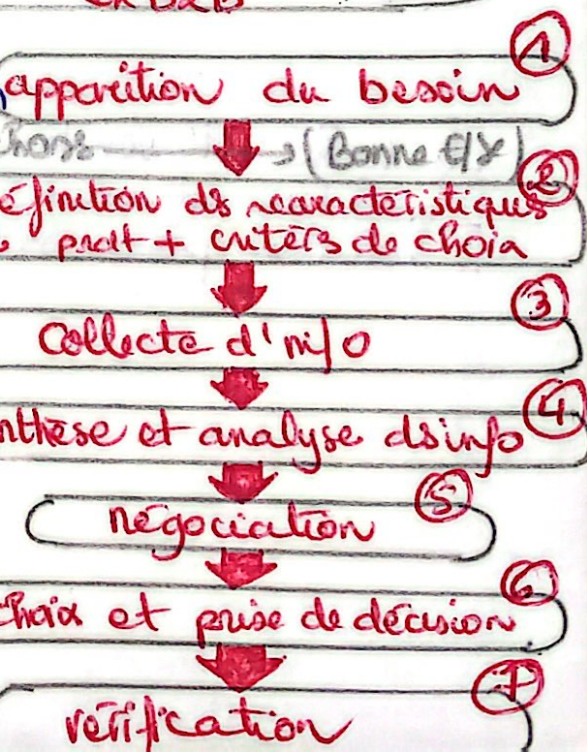 en B2B
①
apparition du besoin
(Bonne
②
éfinition ds caractéristiques
prdt + critèrs de choix
③
Collecte d'info
④
nthèse et analyse ds info
⑤
négociation
⑥
choix et prise de décision
⑦
vérification